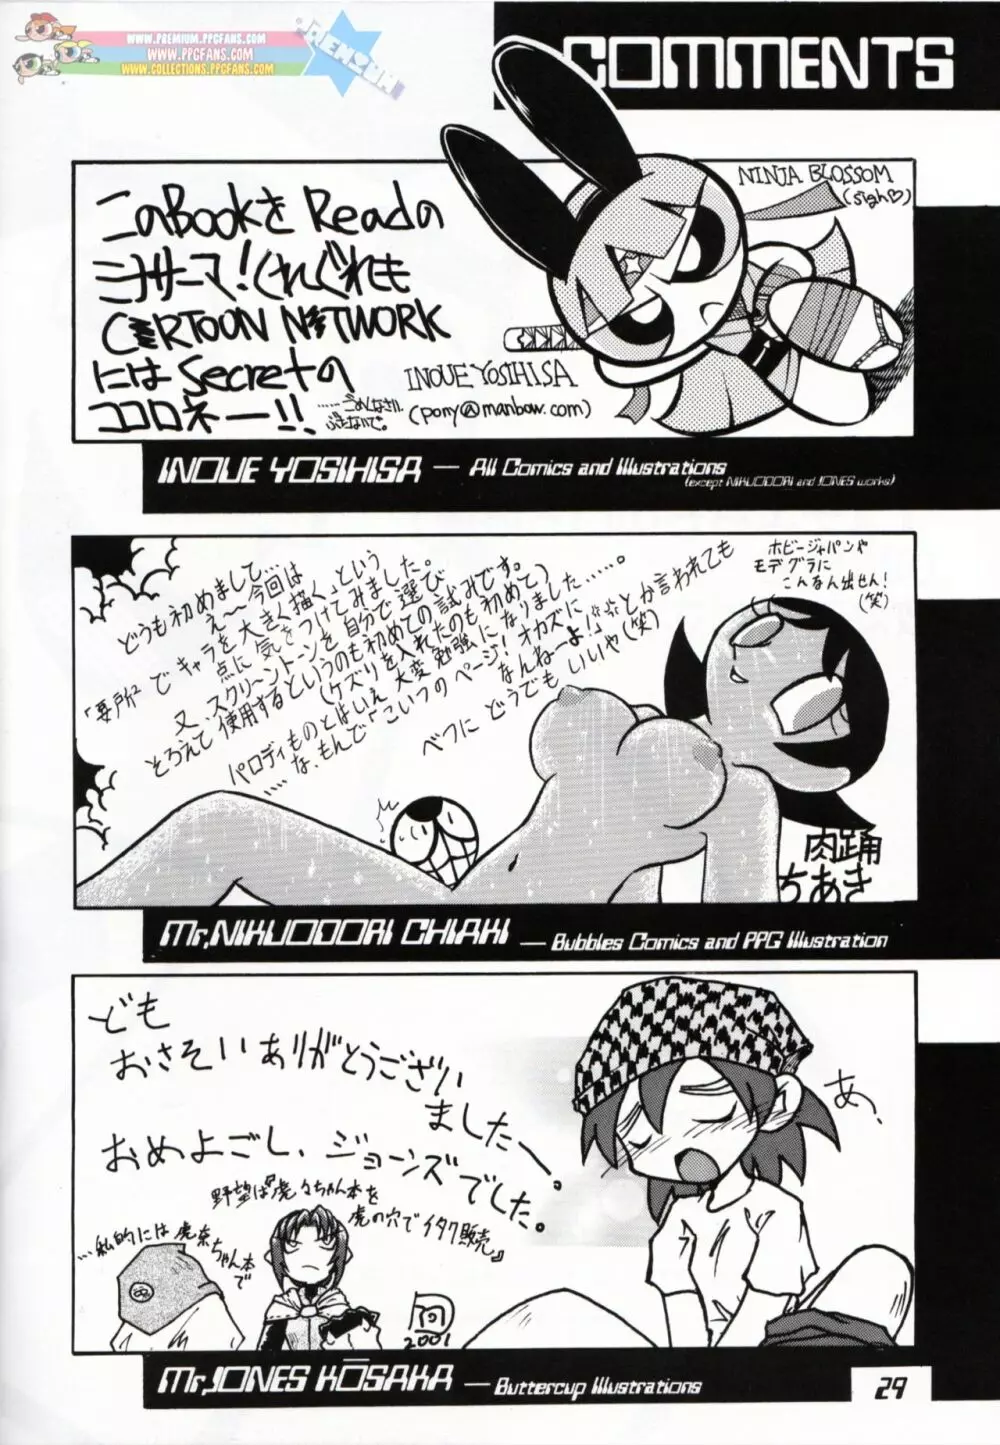 WWW.PREMIUM.PPGFANS.COM
WWW.PPGFANS.COM
WWW.COLLECTIONS.PPGFANS.COM
PREMIUM
COMMENTS
NINJA BLOSSOM
(sigh♡)
このBookを Readの
ミナサーマ!くれぐれも
CARTOON NETWORK
には Secretの
ココロネー!!
……ごめんなさい。
ぶたないで。
INOUE YOSIHISA
(pony@manbow.com)
INOUE YOSIHISA — All Comics and Illustrations
(except NIKUODORI and JONES works)
どうも初めまして…
え〜今回は
「要所」でキャラを大きく描く」という
点に気をつけてみました。
又、スクリーントーンを自分で選び
そろえて使用するというのも初めての試みです。
(ケズリを入れたのも初めて)
パロディものとはいえ大変勉強になりました……。
……な、もんで「こいつのページ!オカズに
なんねーよ!!」とか言われても
べつにどうでもいいや(笑)
ホビージャパンや
モデグラに
こんなん出せん!
(笑)
肉踊
ちあき
Mr,NIKUODORI CHIAKI — Bubbles Comics and PPG Illustration
ども
おさそいありがとうござい
ましたー。
おめよごし、ジョーンズでした。
野望は『虎々ちゃん本を
虎の穴でイタク販売』
…私的には虎奈ちゃん本
で
2001
あ、
Mr,JONES KŌSAKA — Buttercup Illustrations
29